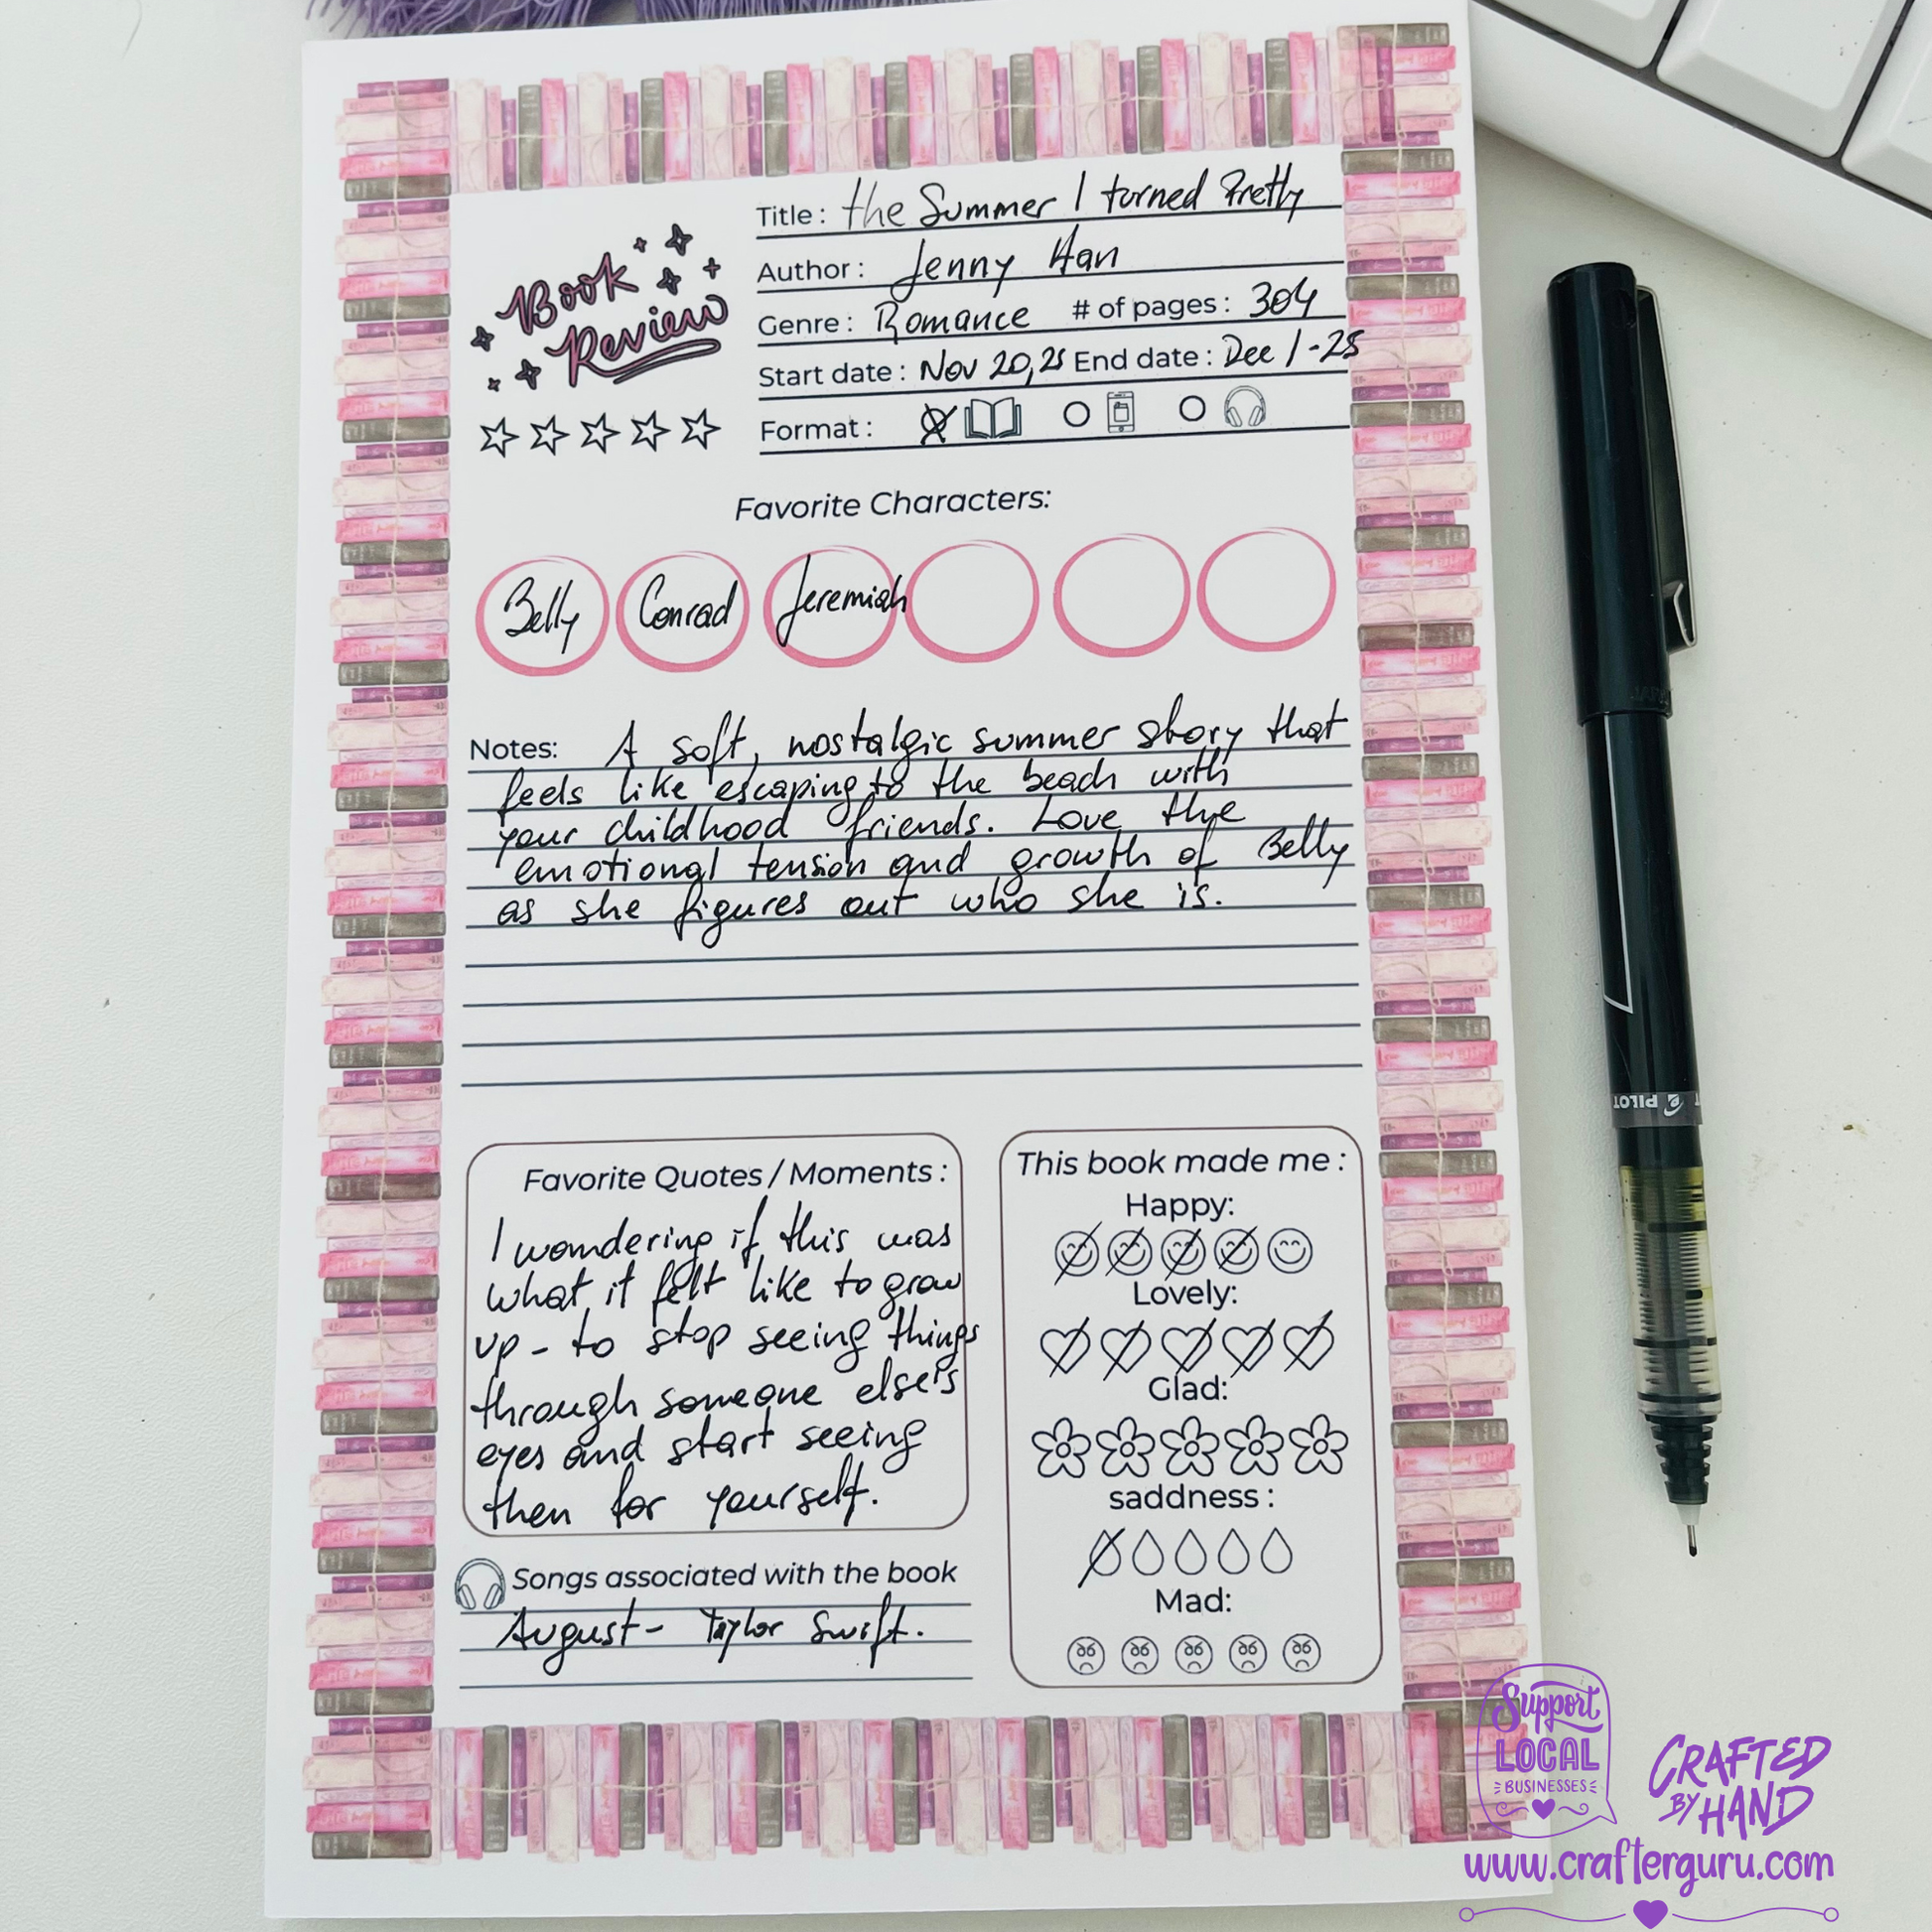 Book
Review
Title : the Summer I turned Pretty
Author : Jenny Han
Genre : Romance # of pages : 304
Start date : Nov 20,25 End date : Dec 1-25
Format :
Favorite Characters:
Belly Conrad Jeremiah
Notes: A soft, nostalgic summer story that
feels like escaping to the beach with
your childhood friends. Love the
emotional tension and growth of Belly
as she figures out who she is.
Favorite Quotes / Moments :
I wondering if this was
what it felt like to grow
up - to stop seeing things
through someone else's
eyes and start seeing
then for yourself.
Songs associated with the book
August - Taylor Swift.
This book made me :
Happy:
Lovely:
Glad:
saddness :
Mad:
PILOT
Support
LOCAL
BUSINESSES
CRAFTED
BY HAND
www.crafterguru.com